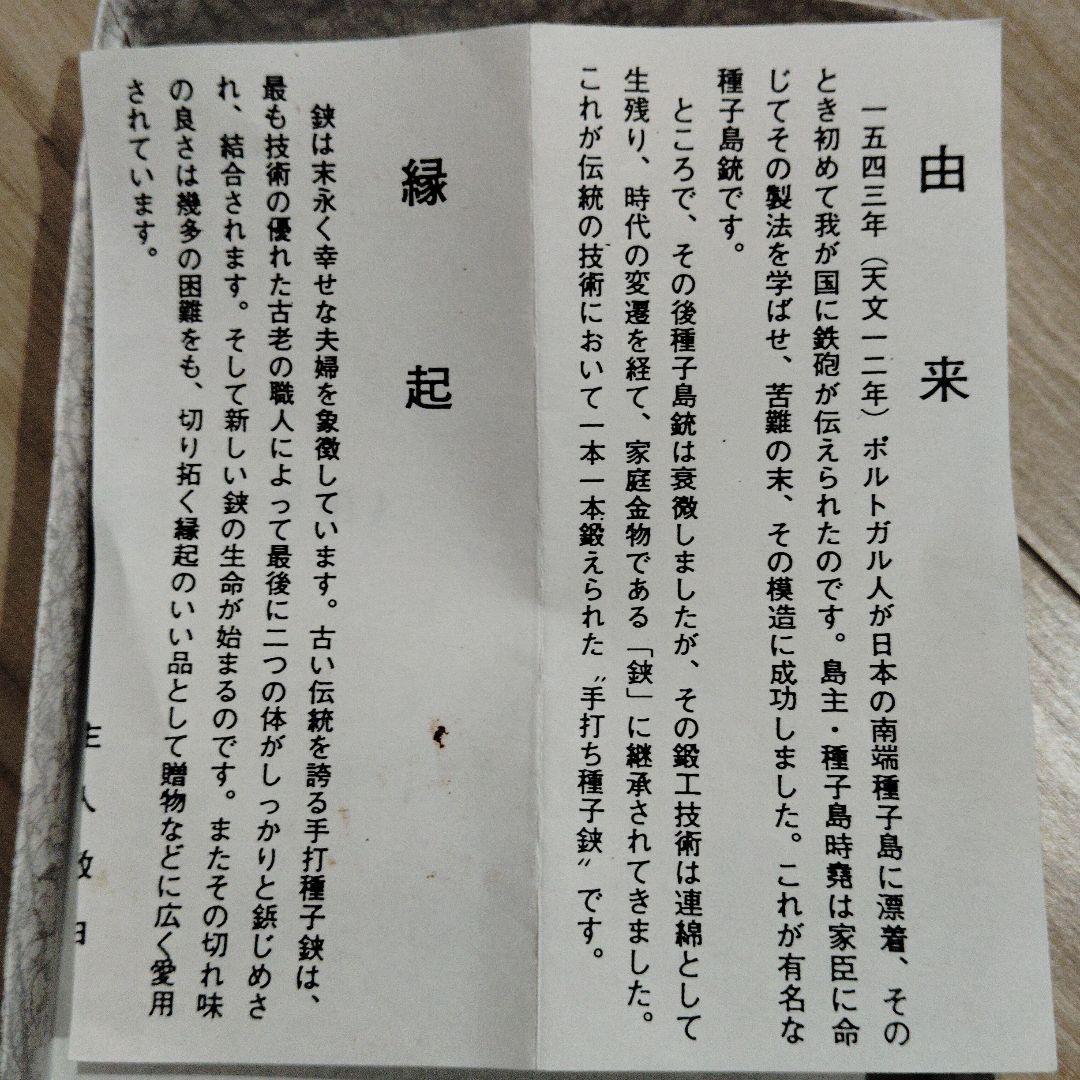 由来
一五四三年（天文一二年）ポルトガル人が日本の南端種子島に漂着、その
とき初めて我が国に鉄砲が伝えられたのです。島主・種子島時堯は家臣に命
じてその製法を学ばせ、苦難の末、その模造に成功しました。これが有名な
種子島銃です。
ところで、その後種子島銃は衰微しましたが、その鍛工技術は連綿として
生残り、時代の変遷を経て、家庭金物である「鋏」に継承されてきました。
これが伝統の技術において一本一本鍛えられた〝手打ち種子鋏〟です。
縁起
鋏は末永く幸せな夫婦を象徴しています。古い伝統を誇る手打種子鋏は、
最も技術の優れた古老の職人によって最後に二つの体がしっかりと鋲じめさ
れ、結合されます。そして新しい鋏の生命が始まるのです。またその切れ味
の良さは幾多の困難をも、切り拓く縁起のいい品として贈物などに広く愛用
されています。
主人敬白